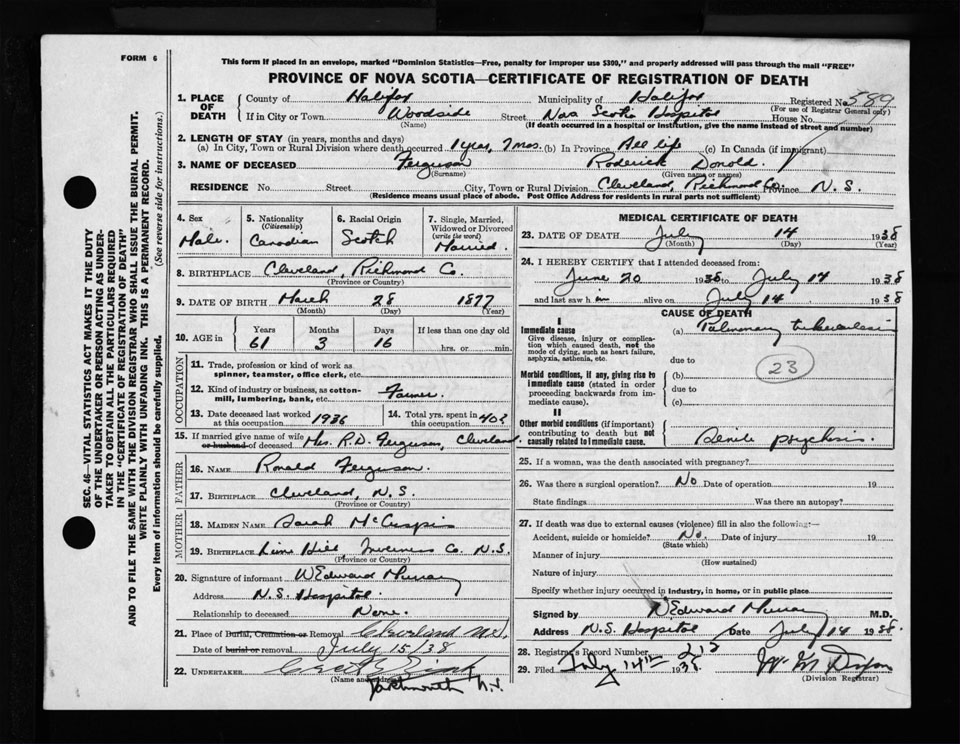 FORM 6
This form if placed in an envelope, marked "Dominion Statistics—Free, penalty for improper use $300," and properly addressed will pass through the mail "FREE"
PROVINCE OF NOVA SCOTIA—CERTIFICATE OF REGISTRATION OF DEATH
SEC. 46—VITAL STATISTICS ACT MAKES IT THE DUTY
OF THE UNDERTAKER OR PERSON ACTING AS UNDER-
TAKER TO OBTAIN ALL THE PARTICULARS REQUIRED
IN THE "CERTIFICATE OF REGISTRATION OF DEATH"
AND TO FILE THE SAME WITH THE DIVISION REGISTRAR WHO SHALL ISSUE THE BURIAL PERMIT.
WRITE PLAINLY WITH UNFADING INK. THIS IS A PERMANENT RECORD.
Every item of information should be carefully supplied. (See reverse side for instructions.)
1. PLACE OF DEATH
County of Halifax Municipality of Halifax Registered No. 389
(For use of Registrar General only)
If in City or Town Woodside Street Nova Scotia Hospital House No.
(Name) (If death occurred in a hospital or institution, give the name instead of street and number)
2. LENGTH OF STAY (in years, months and days)
(a) In City, Town or Rural Division where death occurred 1 year, 7 mos. (b) In Province All life (c) In Canada (if immigrant)
3. NAME OF DECEASED Ferguson Roderick Donald.
(Surname) (Given name or names)
RESIDENCE No. Street City, Town or Rural Division Cleveland, Richmond Co. Province N.S.
(Residence means usual place of abode. Post Office Address for residents in rural parts not sufficient)
4. Sex Male.
5. Nationality (Citizenship) Canadian
6. Racial Origin Scotch
7. Single, Married, Widowed or Divorced (write the word) Married.
8. BIRTHPLACE Cleveland, Richmond Co.
(Province or Country)
9. DATE OF BIRTH March 28 1877
(Month) (Day) (Year)
10. AGE in Years 61 Months 3 Days 16 If less than one day old hrs. or min.
OCCUPATION
11. Trade, profession or kind of work as
spinner, teamster, office clerk, etc.
12. Kind of industry or business, as cotton-
mill, lumbering, bank, etc. Farmer.
13. Date deceased last worked at this occupation 1936
14. Total yrs. spent in this occupation 40?
15. If married give name of wife or husband of deceased Mrs. R.D. Ferguson, Cleveland.
FATHER
16. NAME Ronald Ferguson.
17. BIRTHPLACE Cleveland, N.S.
(Province or Country)
MOTHER
18. MAIDEN NAME Sarah
19. BIRTHPLACE Lime Hill, Inverness Co. N.S.
(Province or Country)
20. Signature of informant W Edward Murray
Address N.S. Hospital.
Relationship to deceased None.
21. Place of Burial, Cremation or Removal Cleveland N.S.
Date of burial or removal July 15/38
22. UNDERTAKER
(Name and address)
Dartmouth N.S.
MEDICAL CERTIFICATE OF DEATH
23. DATE OF DEATH July 14 1938
(Month) (Day) (Year)
24. I HEREBY CERTIFY that I attended deceased from:
June 20 1938 to July 14 1938
and last saw him alive on July 14 1938
CAUSE OF DEATH
I
Immediate cause (a) Pulmonary tuberculosis
Give disease, injury or complica-
tion which caused death, not the
mode of dying, such as heart failure,
asphyxia, asthenia, etc.
due to
23
Morbid conditions, if any, giving rise to
immediate cause (stated in order
proceeding backwards from im-
mediate cause).
(b)
due to
(c)
II
Other morbid conditions (if important)
contributing to death but not
causally related to immediate cause.
Senile psychosis.
25. If a woman, was the death associated with pregnancy?
26. Was there a surgical operation? No Date of operation 19
State findings Was there an autopsy?
27. If death was due to external causes (violence) fill in also the following:—
Accident, suicide or homicide? No. Date of injury 19
(State which)
Manner of injury
(How sustained)
Nature of injury
Specify whether injury occurred in industry, in home, or in public place
Signed by W Edward Murray M.D.
Address N.S. Hospital Date July 14 1938.
28. Registrar's Record Number 212
29. Filed July 14th 1938 W. M. Dyson
(Division Registrar)